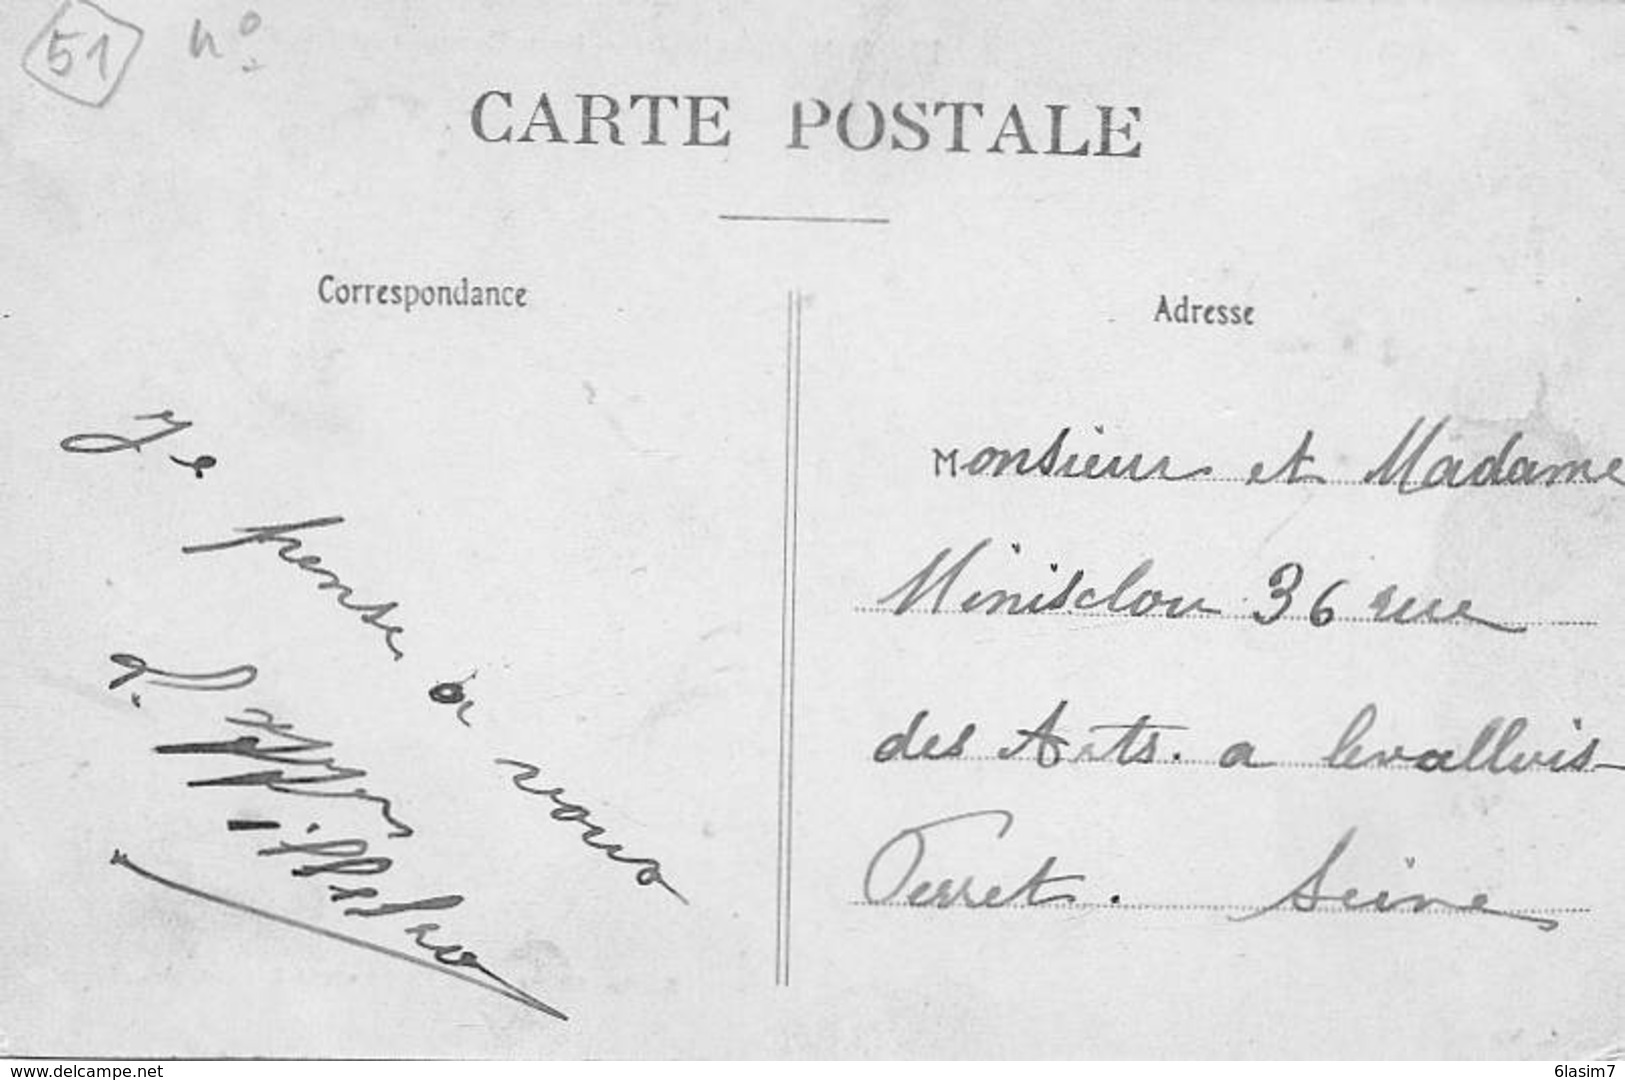 51 nº
CARTE POSTALE
Correspondance
Je pense à vous
Adresse
Monsieur et Madame
Minisclou 36 rue
des Arts. a levallois-
Perret. Seine
www.delcampe.net
6lasim7